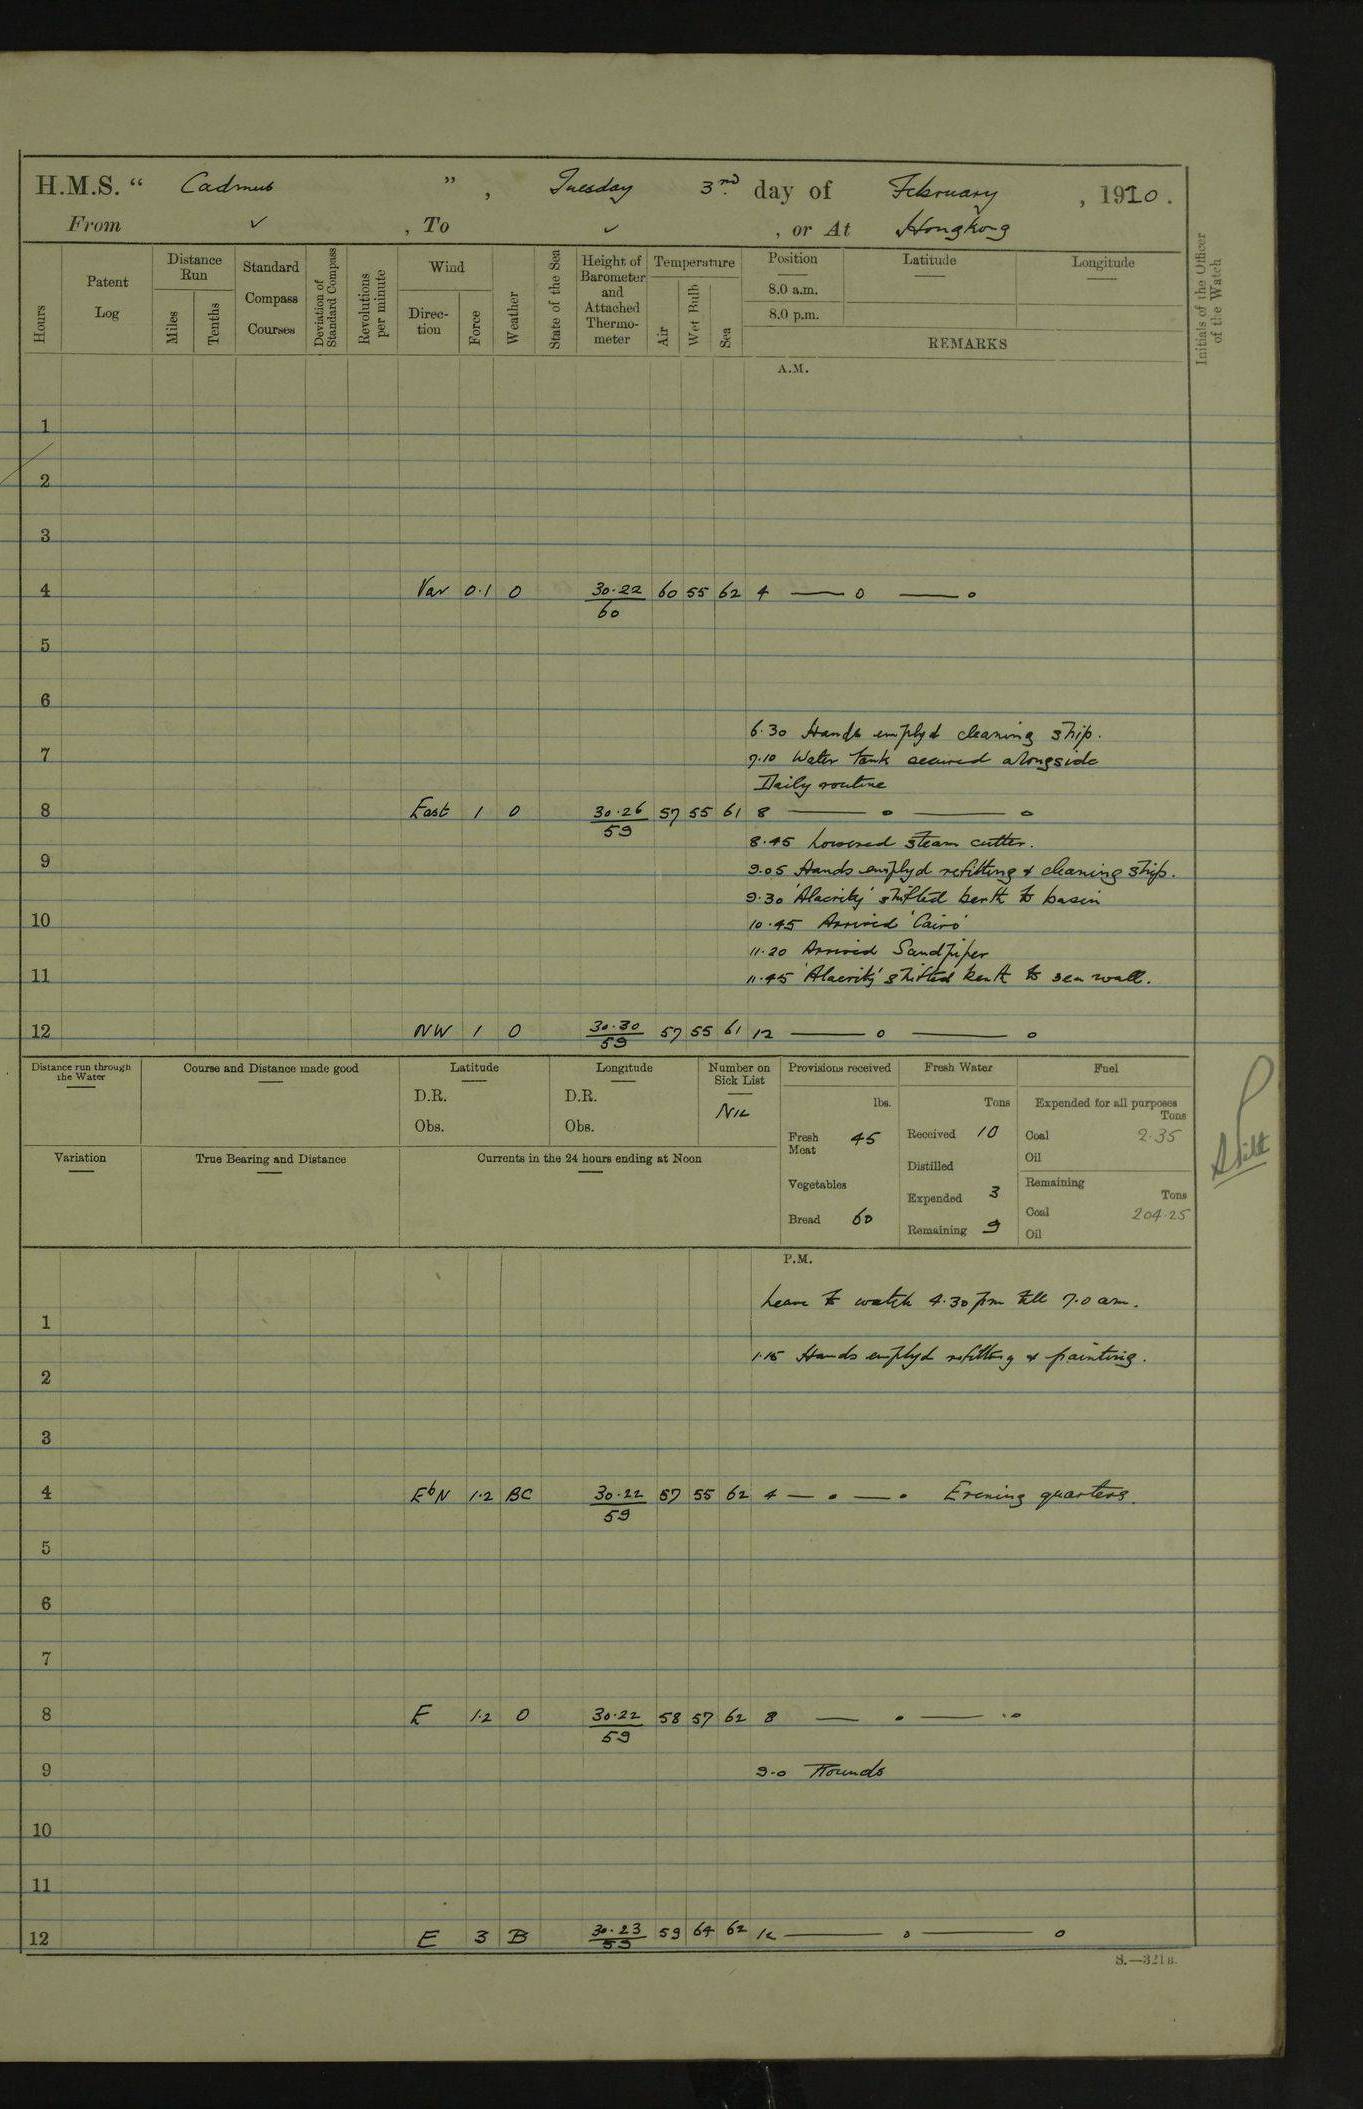 H.M.S. “ Cadmus ” , Tuesday 3rd day of February , 1910 .
From ✓ , To ✓ , or At Hongkong
Hours
Patent Log
Distance Run
Miles
Tenths
Standard Compass Courses
Deviation of Standard Compass
Revolutions per minute
Wind
Direction
Force
Weather
State of the Sea
Height of Barometer and Attached Thermometer
Temperature
Air
Wet Bulb
Sea
Position
8.0 a.m.
8.0 p.m.
Latitude
Longitude
REMARKS
Initials of the Officer of the Watch
A.M.
1
2
3
4 Var 0.1 O 30.22/60 60 55 62 4 — o — o
5
6
6.30 Hands employd cleaning ship.
7 7.10 Water tank secured alongside
Daily routine
8 East 1 O 30.26/59 57 55 61 8 — o — o
8.45 Lowered steam cutter.
9 9.05 Hands employd refitting & cleaning ship.
9.30 'Alacrity' shifted berth to basin
10 10.45 Arrived 'Cairo'
11.20 Arrived Sandpiper
11 11.45 'Alacrity' shifted berth to sea wall.
12 NW 1 O 30.30/59 57 55 61 12 — o — o
Distance run through the Water
Course and Distance made good
Latitude
D.R.
Obs.
Longitude
D.R.
Obs.
Number on Sick List
Nil
Provisions received
lbs.
Fresh Meat 45
Vegetables
Bread 60
Fresh Water
Tons
Received 10
Distilled
Expended 3
Remaining 9
Fuel
Expended for all purposes
Tons
Coal 2.35
Oil
Remaining
Tons
Coal 204.25
Oil
Variation
True Bearing and Distance
Currents in the 24 hours ending at Noon
P.M.
Leave to watch 4.30 pm till 7.0 am.
1
1.15 Hands employd refitting & painting.
2
3
4 EbN 1.2 BC 30.22/59 57 55 62 4 — o — o Evening quarters.
5
6
7
8 E 1.2 O 30.22/59 58 57 62 8 — o — o
9 9.0 Rounds
10
11
12 E 3 B 30.23/59 59 64 62 12 — o — o
S.—321B.